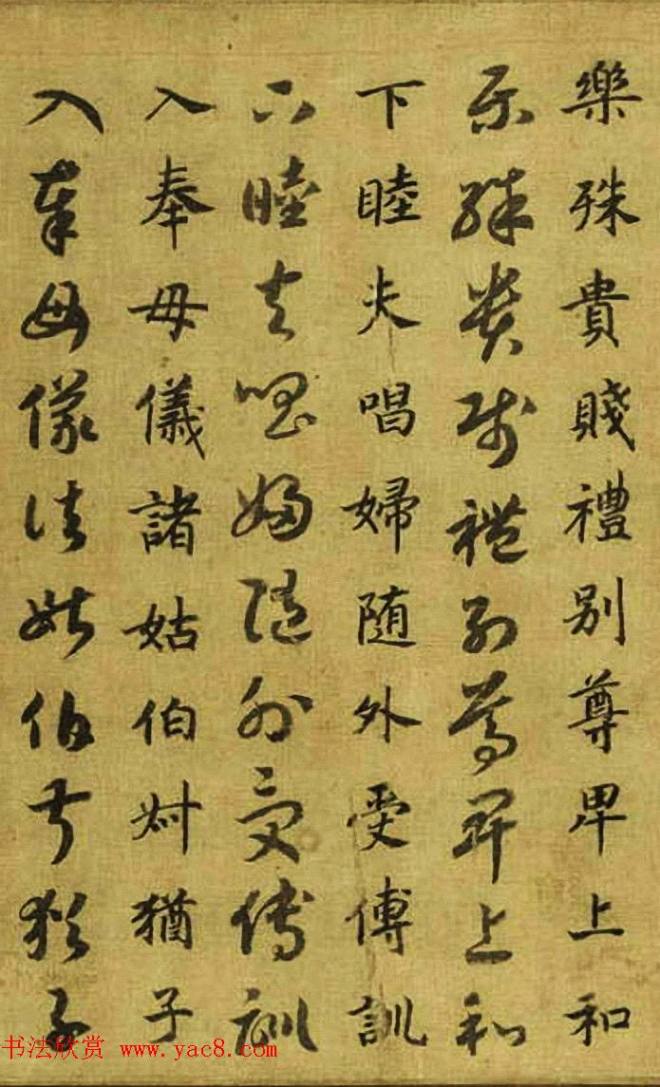 樂殊貴賤禮别尊卑上和
樂殊貴賤禮别尊卑上和
下睦夫唱婦随外受傅訓
下睦夫唱婦随外受傅訓
入奉母儀諸姑伯叔猶子
入奉母儀諸姑伯叔猶子
书法欣赏 www.yac8.com